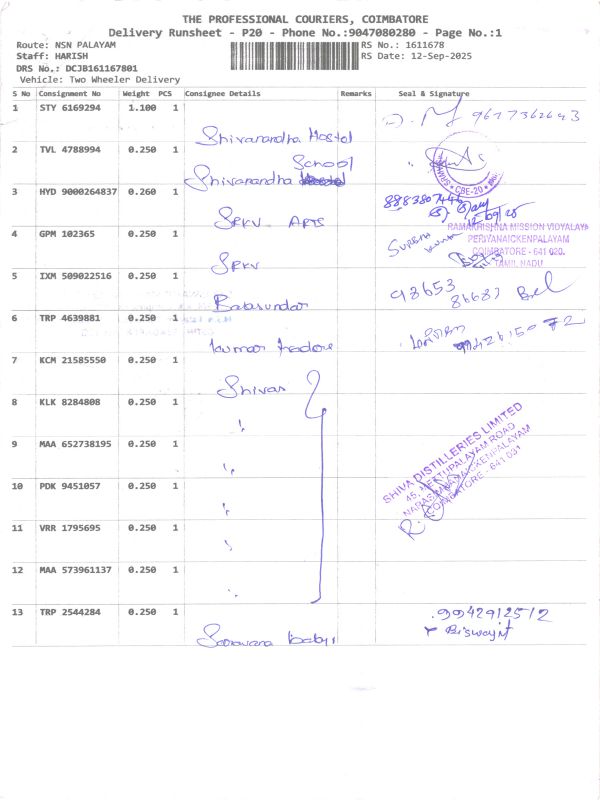 THE PROFESSIONAL COURIERS, COIMBATORE
Delivery Runsheet - P20 - Phone No.:9047080280 - Page No.:1
Route: NSN PALAYAM RS No.: 1611678
Staff: HARISH RS Date: 12-Sep-2025
DRS No.: DCJB161167801
Vehicle: Two Wheeler Delivery
S No Consignment No Weight PCS Consignee Details Remarks Seal & Signature
1 STY 6169294 1.100 1
Shivanandha Hostol
2 TVL 4788994 0.250 1
School
Shivanandha
SRMHN CBE-20
3 HYD 9000264837 0.260 1
8883807446
SRKV ARTS
12/09/25
4 GPM 102365 0.250 1
RAMAKRISHNA MISSION VIDYALAYA
PERIYANAICKENPALAYAM
COIMBATORE - 641 020.
TAMIL NADU
SRKV
5 IXM 509022516 0.250 1
98653
86683
Balasundar
6 TRP 4639881 0.250 1
kumar tradors
7 KCM 21585550 0.250 1
Shivas
8 KLK 8284808 0.250 1
"
SHIVA DISTILLERIES LIMITED
45, METTUPALAYAM ROAD
NARASIMHANAICKENPALAYAM
COIMBATORE - 641 031
9 MAA 652738195 0.250 1
"
10 PDK 9451057 0.250 1
"
11 VRR 1795695 0.250 1
"
12 MAA 573961137 0.250 1
"
13 TRP 2544284 0.250 1
9942912512
Biswajit
Saravana babu